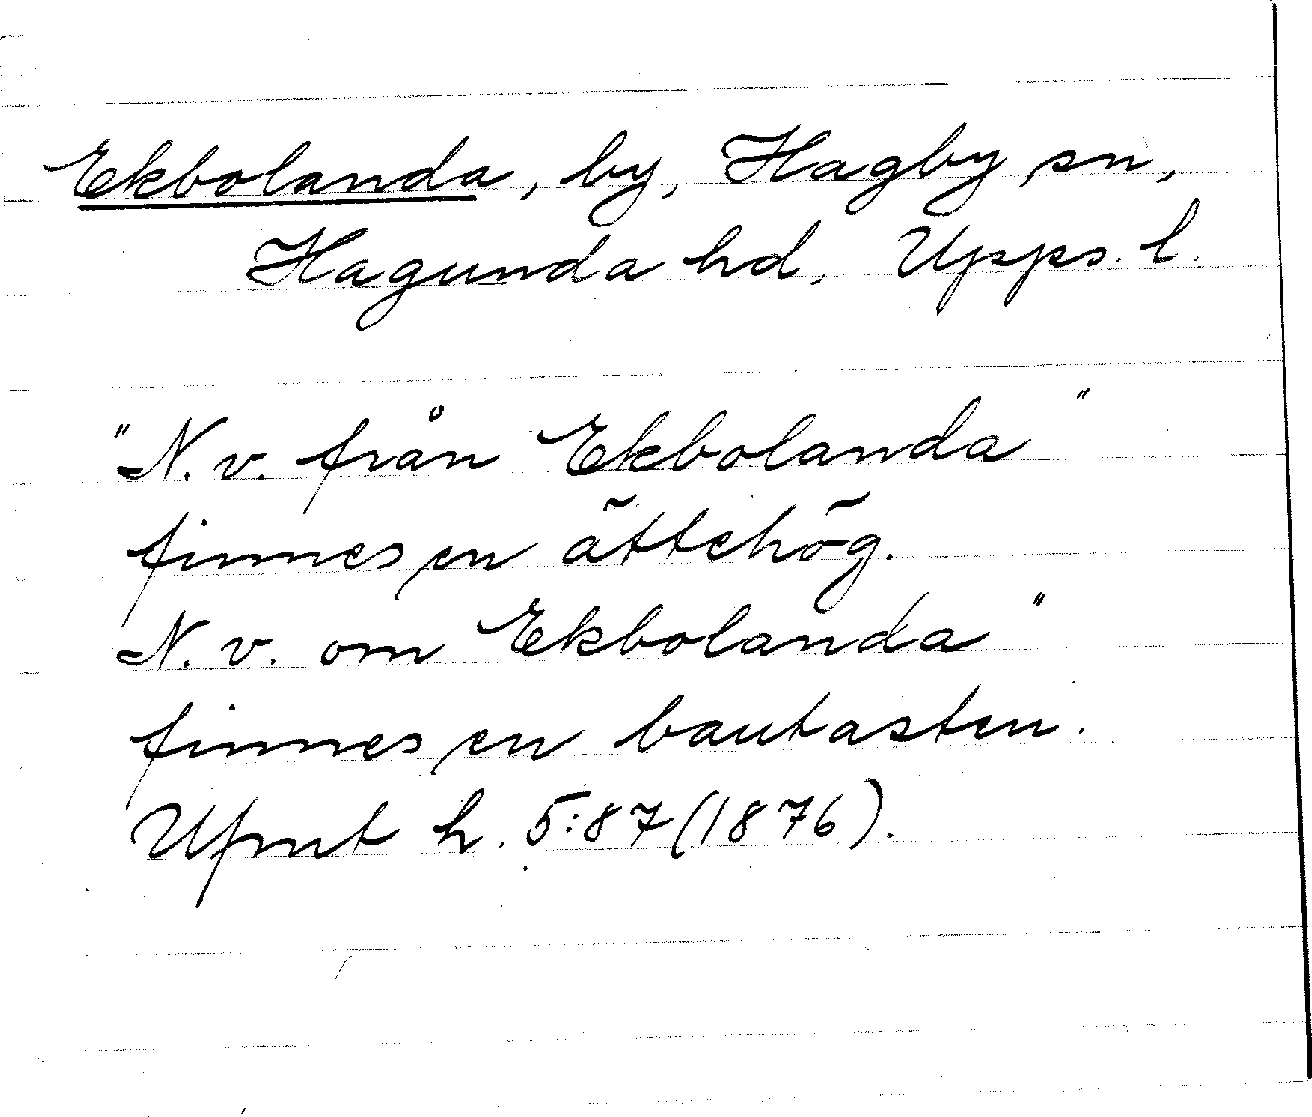 Ekbolanda, by, Hagby sn,
Hagunda hd, Upps. l.
"N.v. från Ekbolanda"
finnes en ättehög.
N.v. om Ekbolanda"
finnes en bautasten.
Ufmt h. 5:87 (1876).